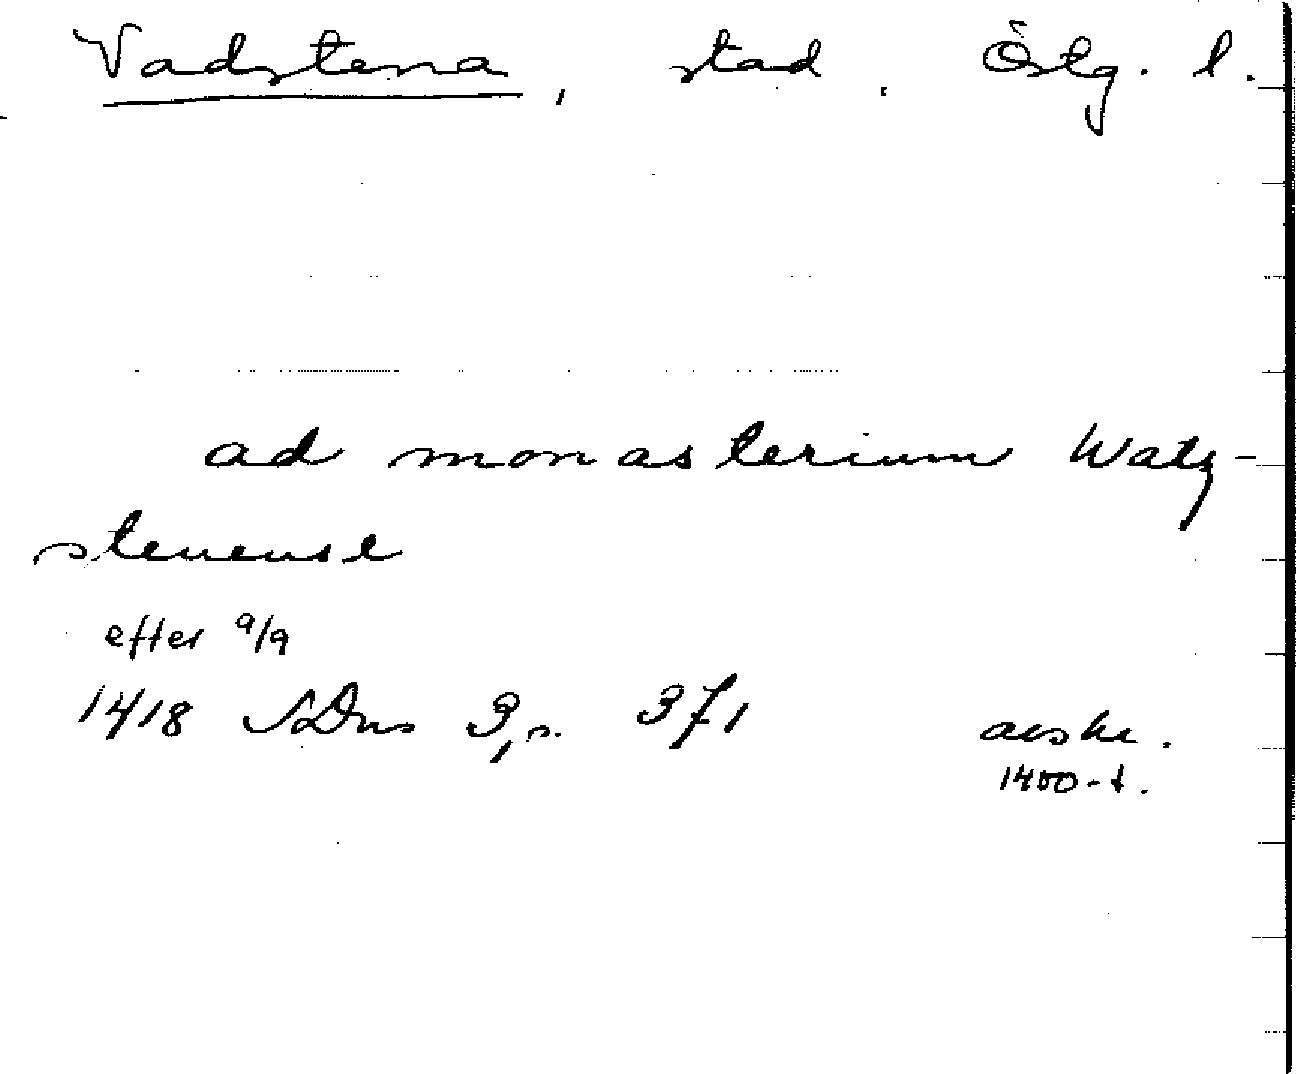 Vadstena, stad. Östg. l.
ad monasterium Watz-
stenense
efter 9/9
1418 SDns 3, s. 371 avskr.
1400-t.